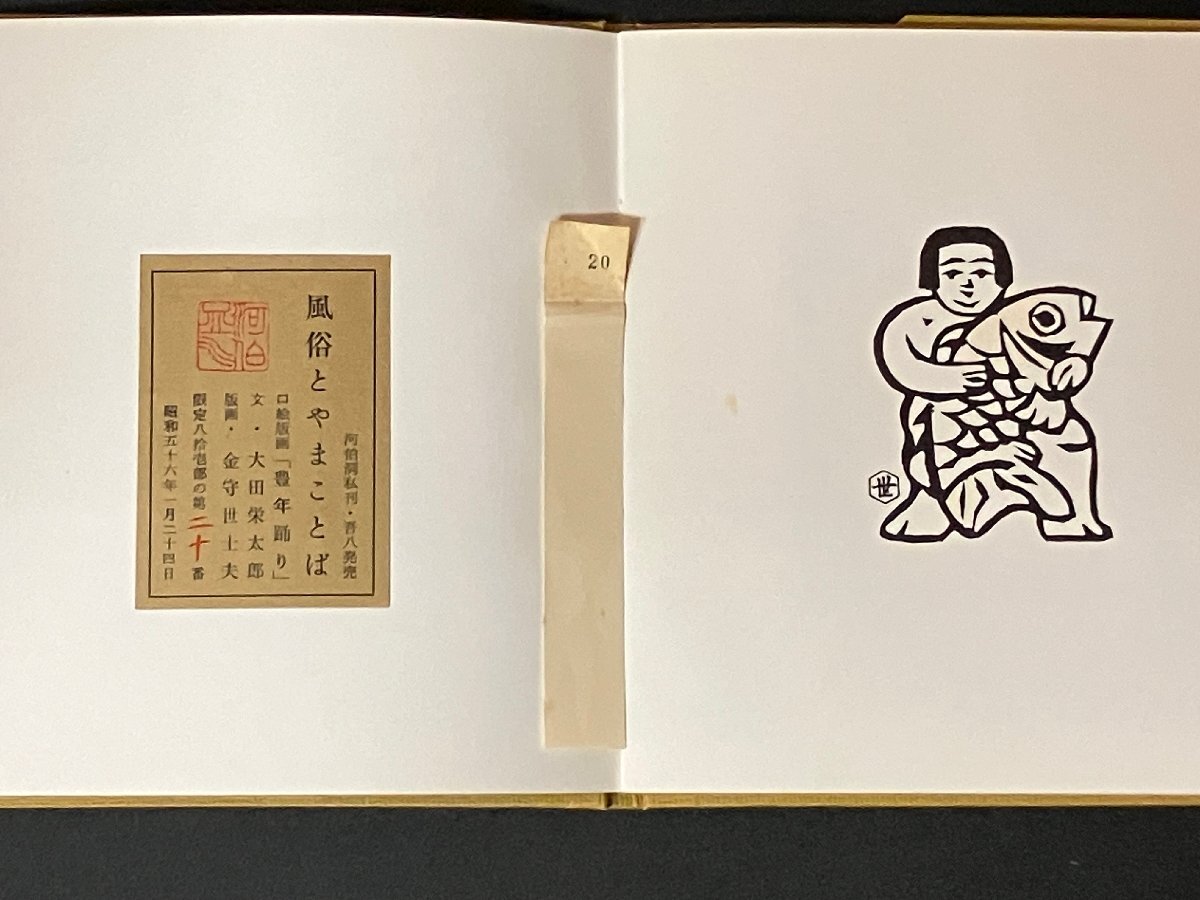 河伯洞私刊・吾八発売
風俗とやまことば
口絵版画「豊年踊り」
文・大田栄太郎
版画・金守世士夫
限定八拾壱部の第二十番
昭和五十六年一月二十四日
20